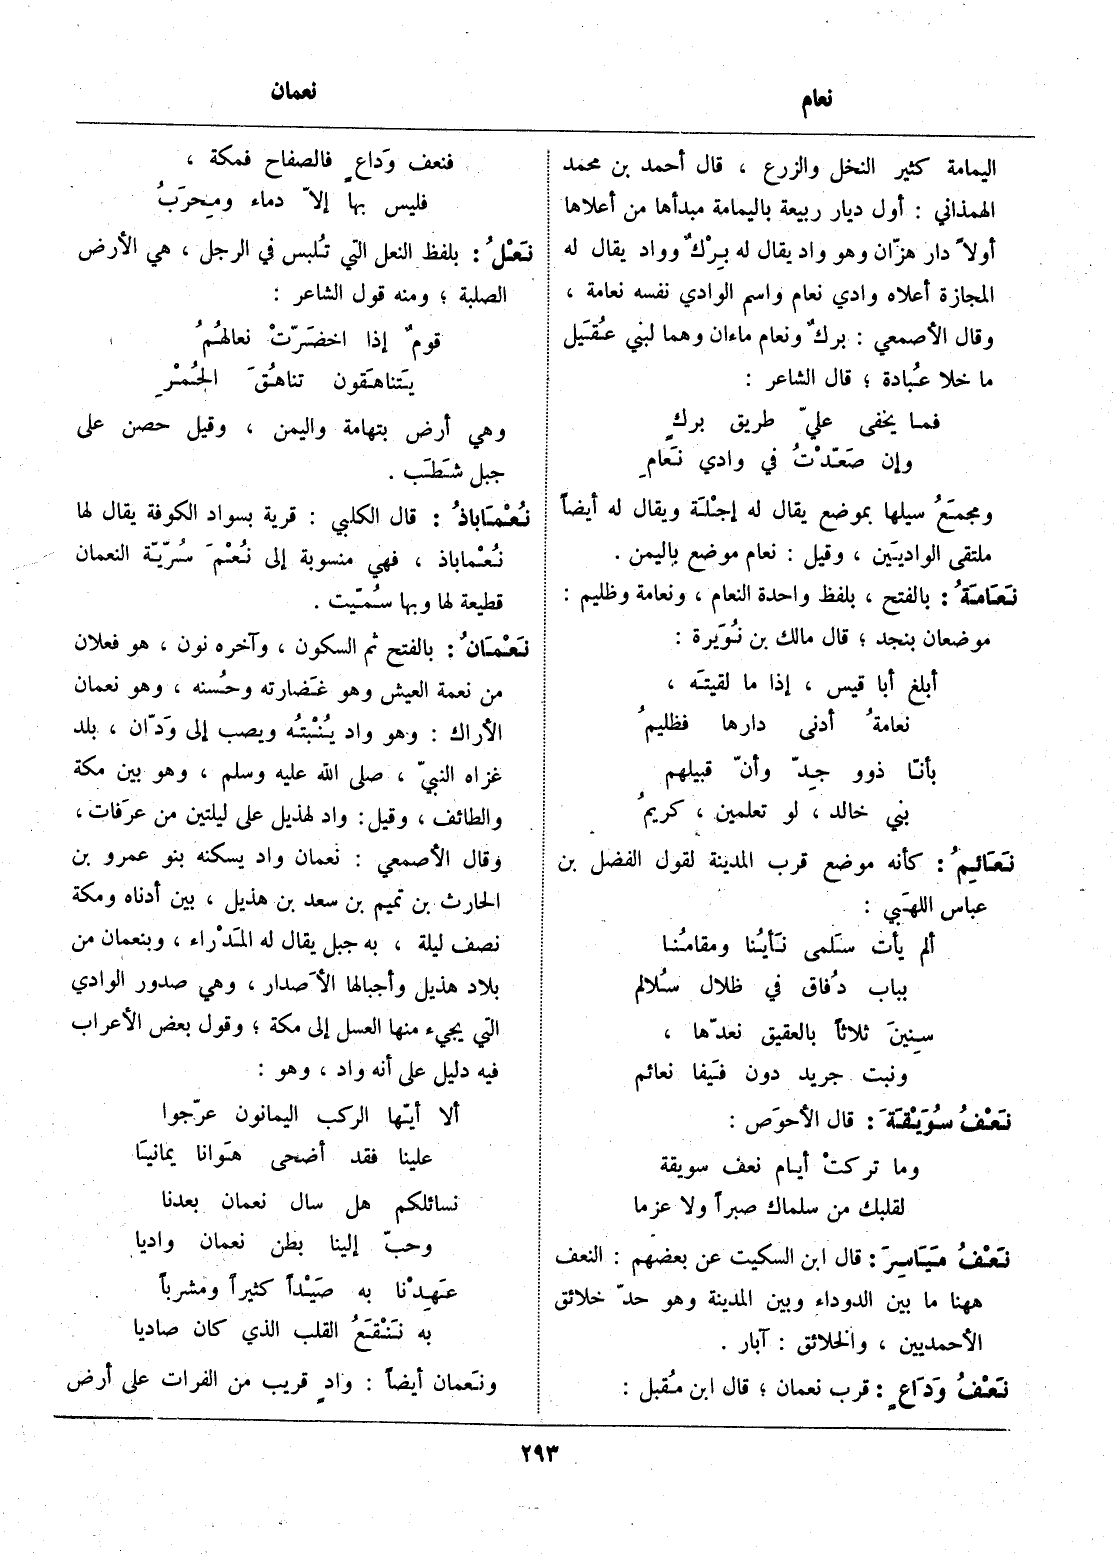 نعام
نعمان
اليمامة كثير النخل والزرع ، قال أحمد بن محمد
الهمذاني : أول ديار ربيعة باليمامة مبدأها من أعلاها
أولاً دار هزّان وهو واد يقال له بِرْكٌ وواد يقال له
المجازة أعلاه وادي نعام واسم الوادي نفسه نعامة ،
وقال الأصمعي : بركٌ ونعام ماءان وهما لبني عُقَيل
ما خلا عُبادة ؛ قال الشاعر :
فما يخفى عليّ طريق بركٍ
وإن صَعّدْتُ في وادي نَعامِ
ومجمَعُ سيلها بموضع يقال له إجْلَة ويقال له أيضاً
ملتقى الواديَين ، وقيل : نعام موضع باليمن .
نَعَامَةُ : بالفتح ، بلفظ واحدة النعام ، ونعامة وظليم :
موضعان بنجد ؛ قال مالك بن نُوَيرة :
أبلغ أبا قيس ، إذا ما لقيتَه ،
نعامةُ أدنى دارها فظليمُ
بأنّا ذوو جِدّ وأنّ قبيلهم
بني خالد ، لو تعلمين ، كريمُ
نَعَائِمُ : كأنه موضع قرب المدينة لقول الفضل بن
عباس اللهَبي :
ألم يأت سَلمى نَأيُنا ومقامُنا
بباب دُفاق في ظلال سُلالم
سِنينَ ثلاثاً بالعقيق نعدّها ،
ونبت جريد دون فَيفا نعائم
نَعْفُ سُوَيْقَةَ : قال الأحوَص :
وما تركتْ أيام نعف سويقة
لقلبك من سلماك صبراً ولا عزما
نَعْفُ مَيَاسِرَ : قال ابن السكيت عن بعضهم : النعف
ههنا ما بين الدوداء وبين المدينة وهو حدّ خلائق
الأحمديين ، والخلائق : آبار .
نَعْفُ وَدَاعٍ : قرب نعمان ؛ قال ابن مُقبل :
فنعف وَداعٍ فالصفاح فمكة ،
فليس بها إلاّ دماء ومِحرَبُ
نَعْلُ : بلفظ النعل التي تُلبس في الرجل ، هي الأرض
الصلبة ؛ ومنه قول الشاعر :
قومٌ إذا اخضَرّتْ نعالهُمُ
يَتَناهَقون تناهُقَ الحُمْرِ
وهي أرض بتهامة واليمن ، وقيل حصن على
جبل شَطَب .
نُعْمَاباذُ : قال الكلبي : قرية بسواد الكوفة يقال لها
نُعْماباذ ، فهي منسوبة إلى نُعْمَ سُرّيّة النعمان
قطيعة لها وبها سُمّيت .
نَعْمَانُ : بالفتح ثم السكون ، وآخره نون ، هو فعلان
من نعمة العيش وهو غَضارته وحُسنه ، وهو نعمان
الأراك : وهو واد يُنْبتُه ويصب إلى وَدّان ، بلد
غزاه النبيّ ، صلى الله عليه وسلم ، وهو بين مكة
والطائف ، وقيل : واد لهذيل على ليلتين من عرَفات ،
وقال الأصمعي : نعمان واد يسكنه بنو عمرو بن
الحارث بن تميم بن سعد بن هذيل ، بين أدناه ومكة
نصف ليلة ، به جبل يقال له المَدْراء ، وبنعمان من
بلاد هذيل وأجبالها الأَصدار ، وهي صدور الوادي
التي يجيء منها العسل إلى مكة ؛ وقول بعض الأعراب
فيه دليل على أنه واد ، وهو :
ألا أيّها الركب اليمانون عرّجوا
علينا فقد أضحى هَوانا يمانيَا
نسائلكم هل سال نعمان بعدنا
وحبّ إلينا بطن نعمان واديا
عَهِدْنا به صَيْداً كثيراً ومشرباً
به نَنْقَعُ القلب الذي كان صاديا
ونَعمان أيضاً : وادٍ قريب من الفرات على أرض
٢٩٣